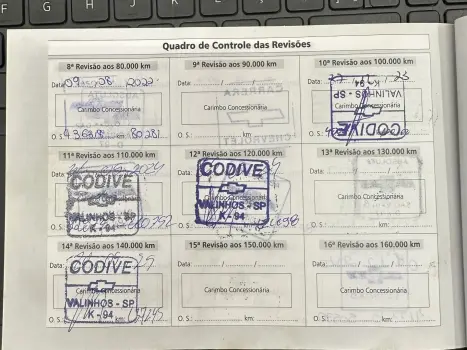 F G H J K
Quadro de Controle das Revisões
8ª Revisão aos 80.000 km
Data: 09 / 08 / 2022
Carimbo Concessionária
O. S.: km: 80281
9ª Revisão aos 90.000 km
Data: / /
Carimbo Concessionária
O. S.: km:
10ª Revisão aos 100.000 km
Data: 23
CODIVE
VALINHOS - SP
K - 94
O. S.:
11ª Revisão aos 110.000 km
Data:
CODIVE
VALINHOS - SP
K - 94
O. S.:
12ª Revisão aos 120.000 km
Data:
CODIVE
VALINHOS - SP
K - 94
O. S.:
13ª Revisão aos 130.000 km
Data: / /
Carimbo Concessionária
O. S.: km:
14ª Revisão aos 140.000 km
Data:
CODIVE
Carimbo Concessionária
VALINHOS - SP
K - 94
O. S.: km:
15ª Revisão aos 150.000 km
Data: / /
Carimbo Concessionária
O. S.: km:
16ª Revisão aos 160.000 km
Data: / /
Carimbo Concessionária
O. S.: km: